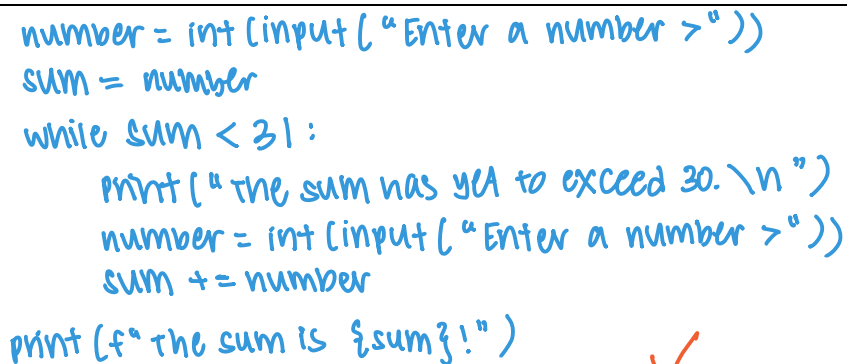 number = int(input("Enter a number >"))
sum = number
while sum < 31:
print("The sum has yet to exceed 30.\n")
number = int(input("Enter a number >"))
sum += number
print(f"The sum is {sum}!")